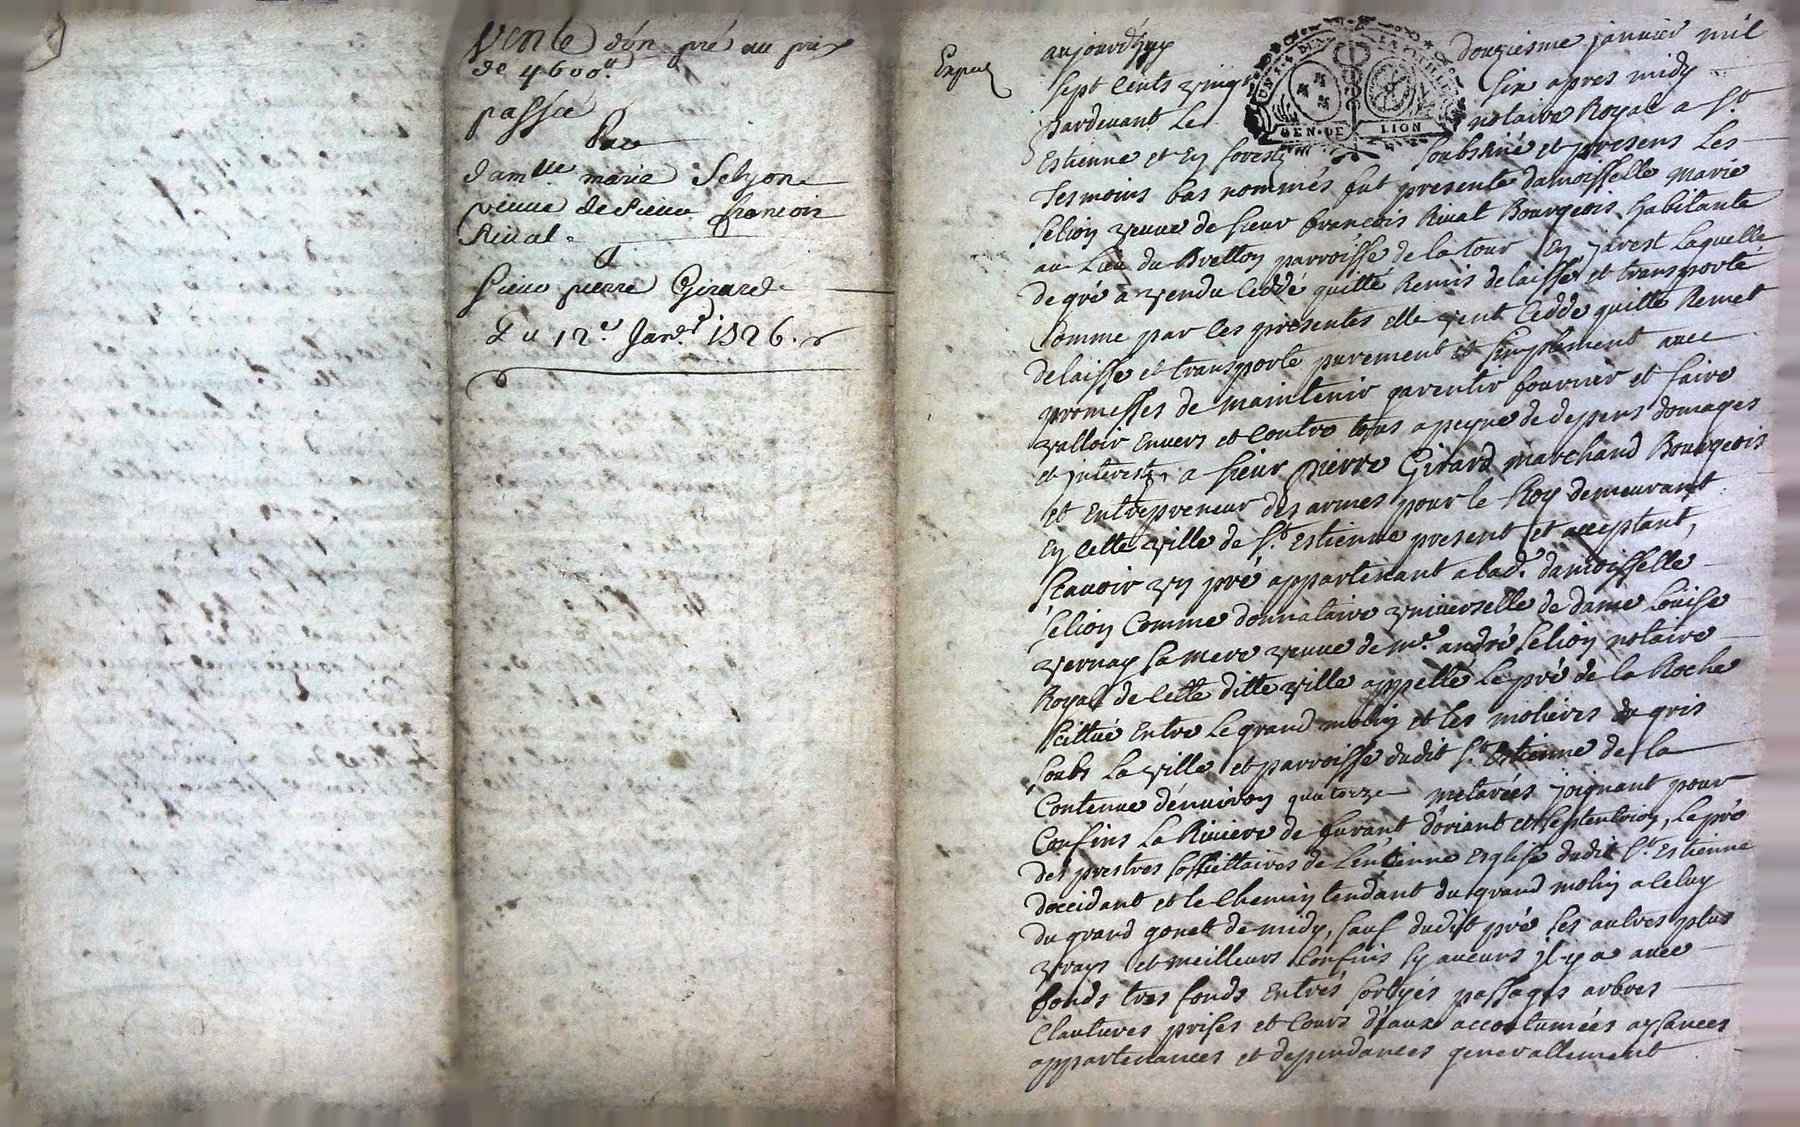 Vente d'un pré au prix
de 4600ᶫᶫ
passée
Par
damlle marie Selyon
veuve de sieur françois
Rivat
A
sieur pierre Girard
Du 12e Janer 1726.
Expié
aujourdhuy douziesme janvier mil
sept cents vingt six apres midy
pardevant Le notaire Royal a St
Estienne et En forestz soubsigné et presens Les
Tesmoins bas nommés fut presente damoisselle marie
selion veuve de sieur francois Rivat Bourgeois habitante
au Lieu du Bretton parroisse de la tour En jarest Laquelle
de gré a vendu Ceddé quitté Remis delaissé et transporté
Comme par Les presentes elle vent Cedde quitte Remet
delaisse et transporte purement et simplement avec
promesses de maintenir garentir fournir et faire
valloir Envers et Contre tous a peyne de depens domages
et jnterestz, a sieur pierre Girard marchand Bourgeois
et Entrepreneur des armes pour le Roy demeurant
En Cette ville de St Estienne present et acceptant,
scavoir un pré appartenant a lad. damoisselle
selion Comme donnataire universelle de dame Louise
vernay sa mere veuve de me. andré selion notaire
Royal de Cette ditte ville appellé Le pré de la Roche
scittué Entre Le grand molin et les molieres du gris
soubs La ville et parroisse dudit St Estienne de la
Contenue dénviron quatorze metarées joignant pour
Confins La Riviere de furant d'oriant et septentrion, Le pré
des prestres sossiettaires de Lentienne Esglise dudit St Estienne
doccidant et le Chemin tendant du grand molin a Celuy
du grand gonet de midy, sauf dudit pré les autres plus
vrays et meilleurs Confins sy aucuns jl-y a avec
fonds tres fonds Entrés sortyes passages arbres
Clautures prises et Cours d'eaux accoutumées aysances
appartenances et dependances generallement